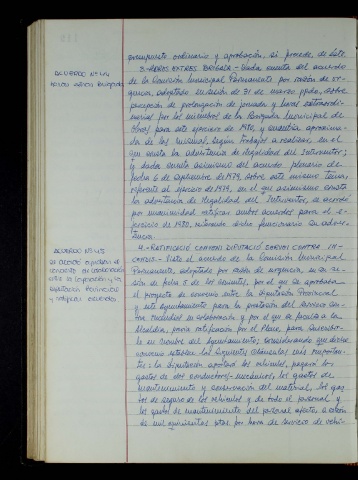 presupuesto ordinario y aprobación, si procede de éste.
ACUERDO Nº 44
3.-HORES EXTRES BRIGADA.- Dada cuenta del acuerdo
de la Comisión Municipal Permanente por razón de ur-
gencia, adoptado en sesión de 31 de marzo ppdo, sobre
percepción de prolongación de jornada y horas extraordi-
narias por los miembros de la Brigada Municipal de
Obras para este ejercicio de 1980, y cuantía aproxima-
da de las mismas, según trabajos a realizar, en el
que consta la advertencia de ilegalidad del Interventor;
y dada cuenta asimismo del acuerdo plenario de
fecha 6 de septiembre de 1979, sobre este mismo tema,
referente al ejercicio de 1979, en el que asimismo consta
la advertencia de ilegalidad del Interventor, se acordó
por unanimidad ratificar ambos acuerdos para el e-
jercicio de 1980, reiterando dicho funcionario su adver-
tencia.
ACUERDO Nº 45
4.- RATIFICACIÓ CONVENI DIPUTACIÓ SERVEI CONTRA IN-
CENDIS.- Visto el acuerdo de la Comisión Municipal
Permanente, adoptado por razón de urgencia, en su se-
sión de fecha 5 de los corrientes, por el que se aprobaba
el proyecto de convenio entre la Diputación Provincial
y este Ayuntamiento para la prestación del servicio con-
tra incendios en colaboración y por el que se faculta a la
Alcaldía, previa ratificación por el Pleno, para suscribir-
lo en nombre del Ayuntamiento; considerando que dicho
convenio establece los siguientes
importan-
tes: la Diputación aportará los vehículos, pagará los
gastos de dos conductores-mecánicos, los gastos de
mantenimiento y conservación del material, los gas-
tos de seguro de los vehículos y de todo el personal y
los gastos de mantenimiento del personal afecto, a razón
de mil quinientas ptas. por hora de servicio de vehí-